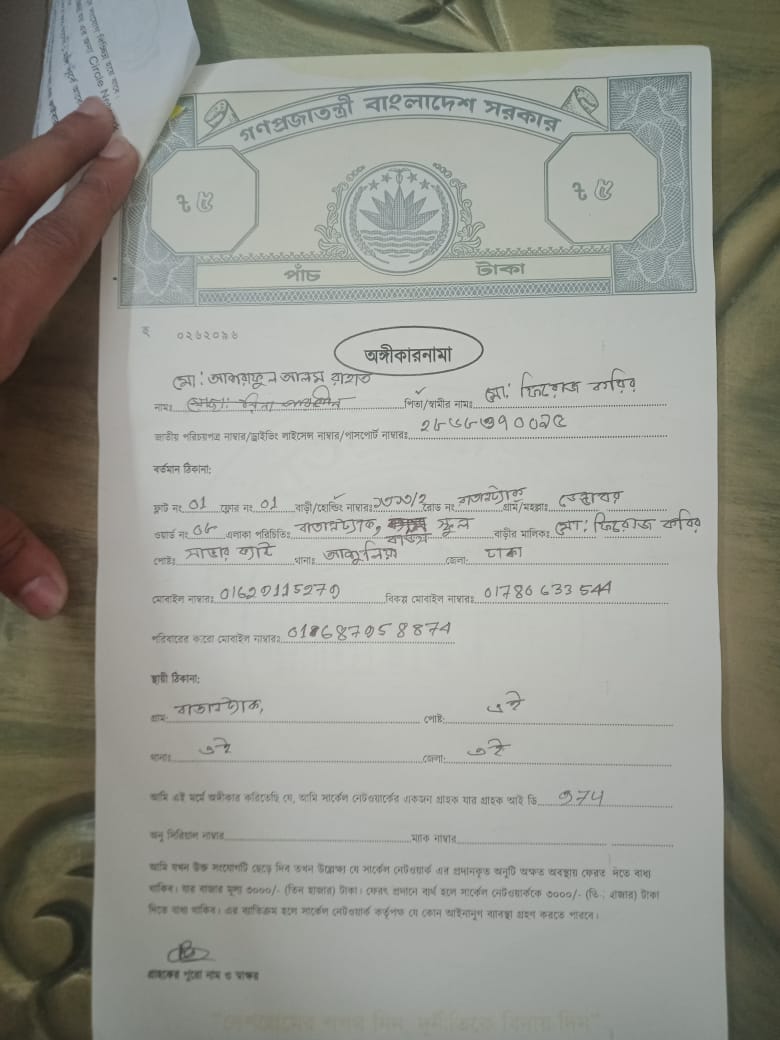 Circle
গণপ্রজাতন্ত্রী বাংলাদেশ সরকার
৳ ৫ ৳ ৫
পাঁচ টাকা
০২৬২০৯৬
অঙ্গীকারনামা
মো: আশরাফুল আলম রাহাত
নামঃ পিতা/স্বামীর নামঃ মো: ফিরোজ কবির
জাতীয় পরিচয়পত্র নাম্বার/ড্রাইভিং লাইসেন্স নাম্বার/পাসপোর্ট নাম্বারঃ
বর্তমান ঠিকানা:
ফ্লাট নং 01 ফ্লোর নং 01 বাড়ী/হোল্ডিং নাম্বারঃ রোড নং গ্রাম/মহল্লাঃ
ওয়ার্ড নং এলাকা পরিচিতিঃ স্কুল বাড়ীর মালিকঃ মো: ফিরোজ কবির
পোষ্টঃ সাভার ক্যান্ট থানাঃ আশুলিয়া জেলা: ঢাকা
মোবাইল নাম্বারঃ বিকল্প মোবাইল নাম্বারঃ 01780633544
পরিবারের কারো মোবাইল নাম্বারঃ
স্থায়ী ঠিকানা:
গ্রাম: পোষ্ট: ঐ
থানাঃ ঐ জেলা: ঐ
আমি এই মর্মে অঙ্গীকার করিতেছি যে, আমি সার্কেল নেটওয়ার্কের একজন গ্রাহক যার গ্রাহক আই ডি 974
অনু সিরিয়াল নাম্বার ম্যাক নাম্বার
আমি যখন উক্ত সংযোগটি ছেড়ে দিব তখন উল্লেক্ষ্য যে সার্কেল নেটওয়ার্ক এর প্রদানকৃত অনুটি অক্ষত অবস্থায় ফেরত দিতে বাধ্য
থাকিব। যার বাজার মূল্য ৩০০০/- (তিন হাজার) টাকা। ফেরৎ প্রদানে ব্যর্থ হলে সার্কেল নেটওয়ার্ককে ৩০০০/- হাজার) টাকা
দিতে বাধ্য থাকিব। এর ব্যতিক্রম হলে সার্কেল নেটওয়ার্ক কর্তৃপক্ষ যে কোন আইনানুগ ব্যবস্থা গ্রহণ করতে পারবে।
গ্রাহকের পুরো নাম ও স্বাক্ষর